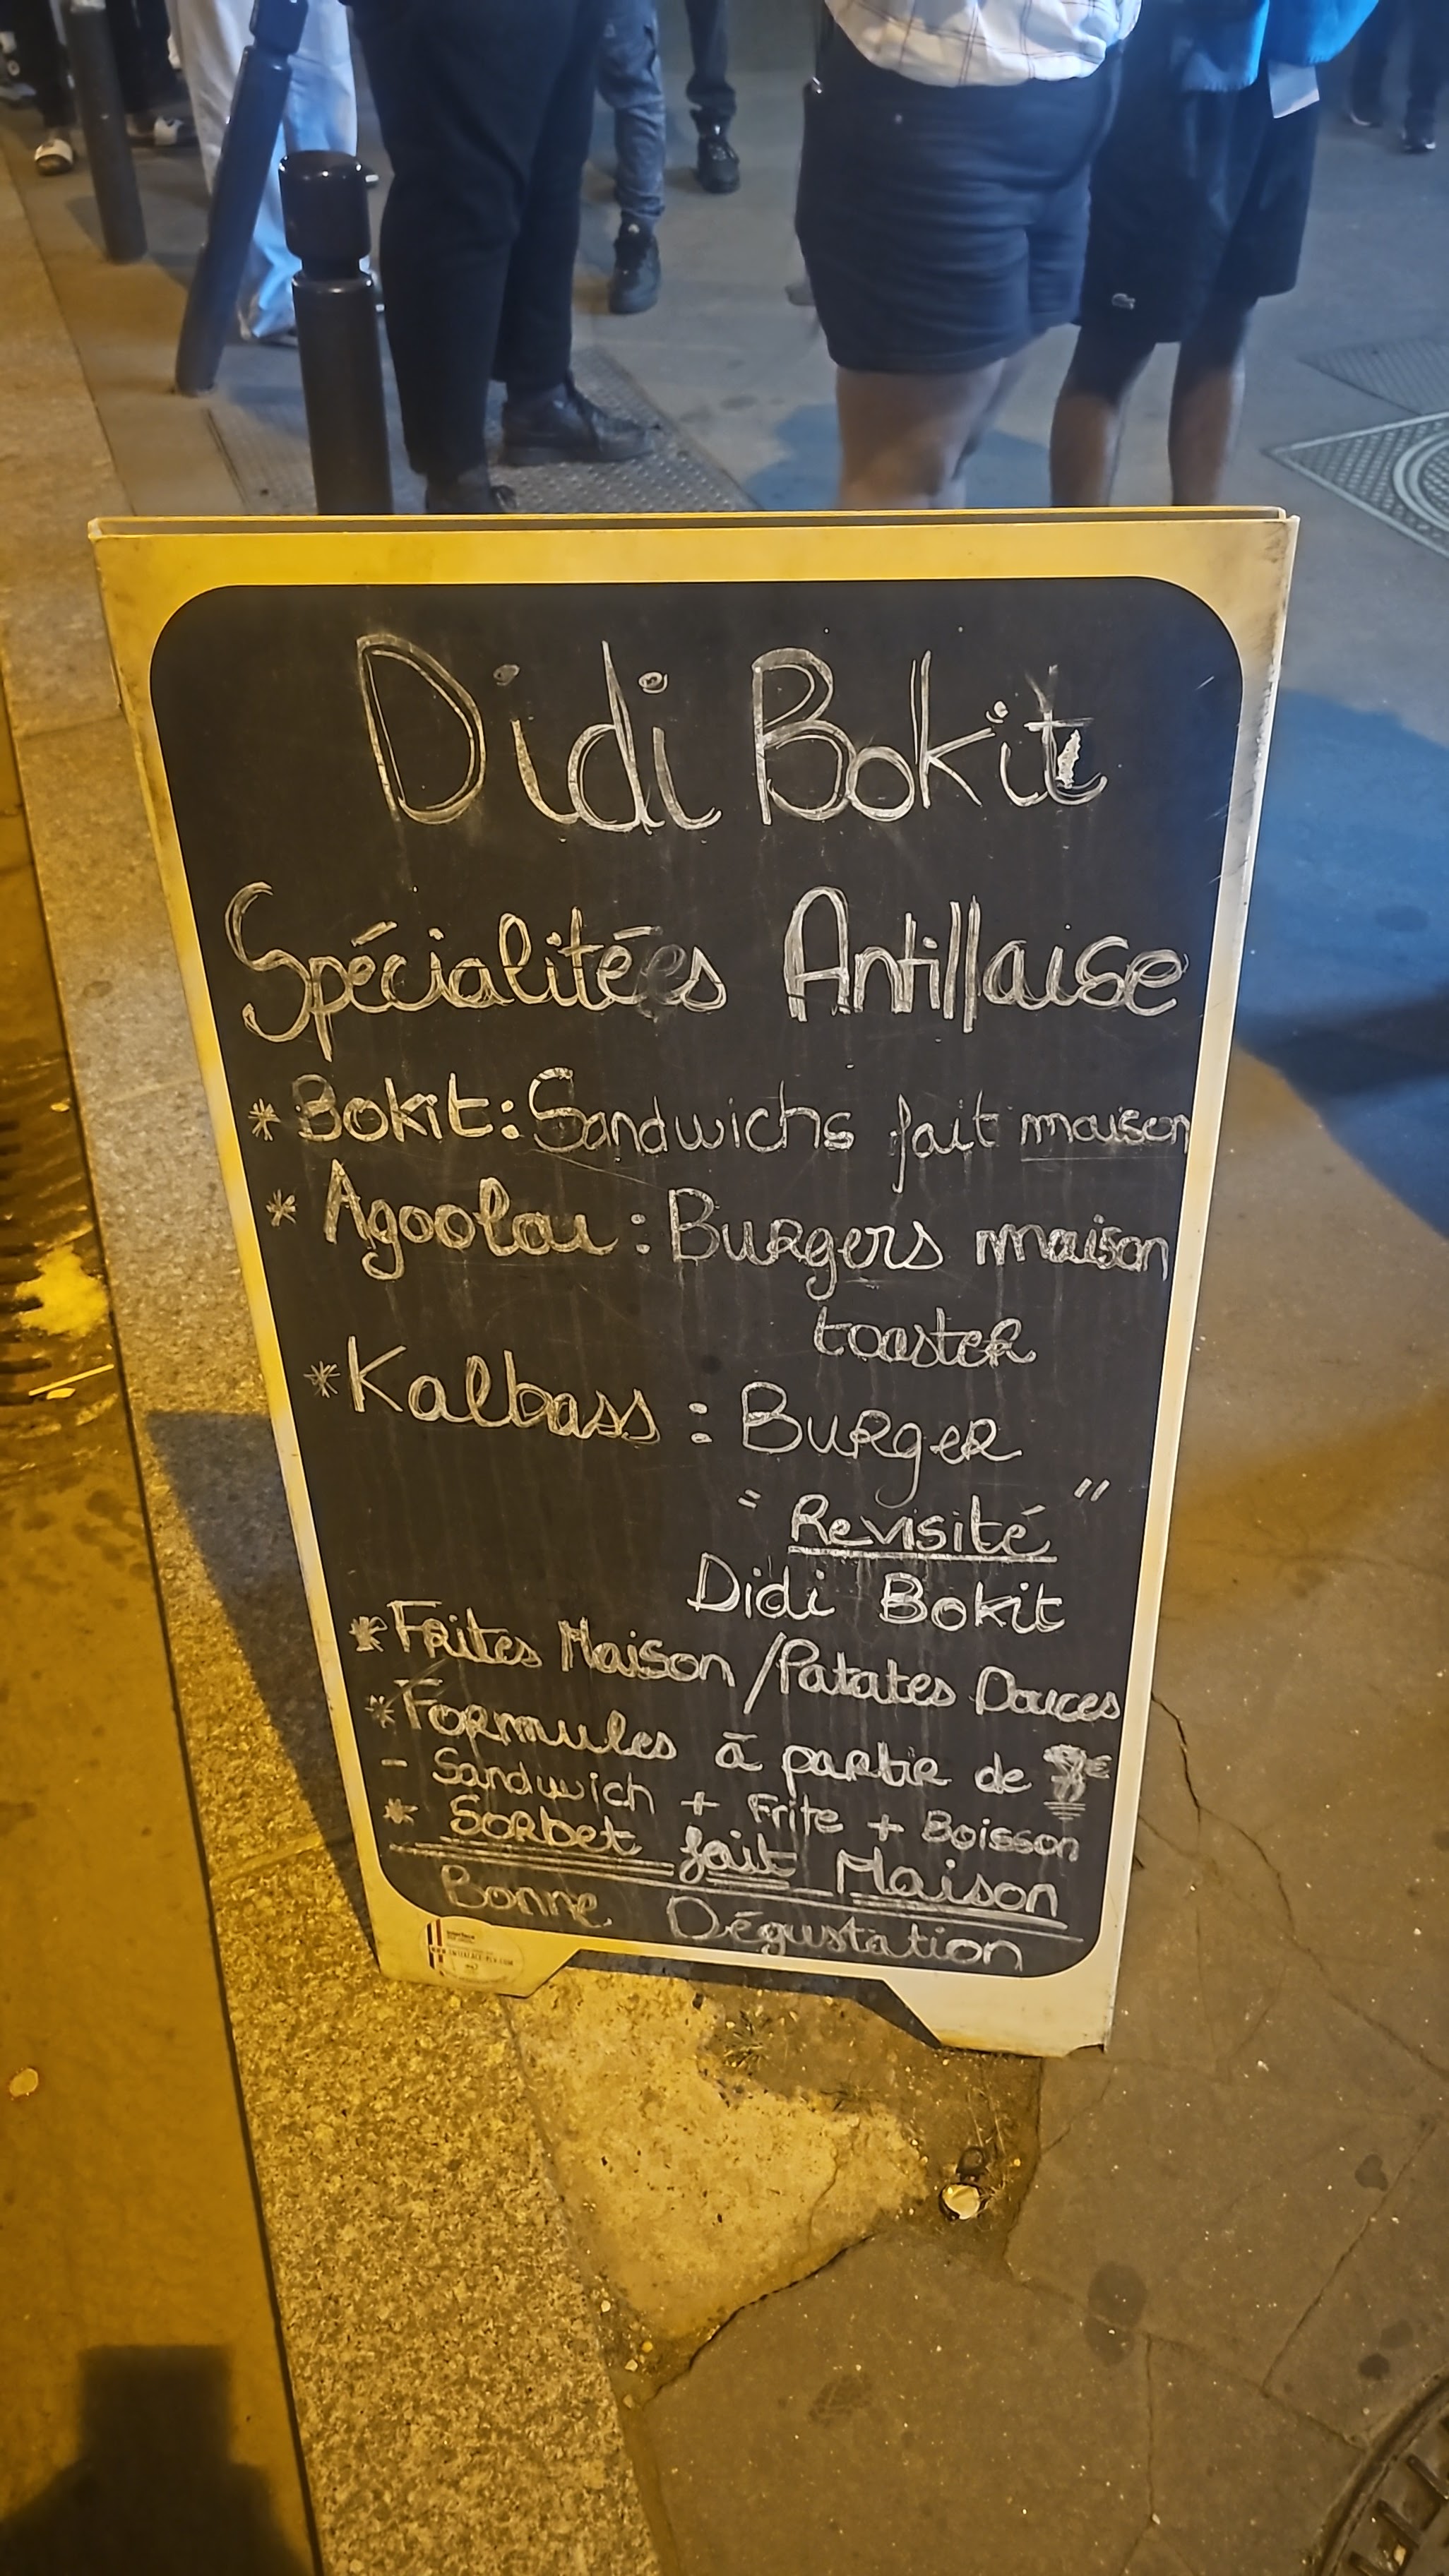 Didi Bokit
Spécialitées Antillaise
* Bokit : Sandwichs fait maison
* Agoolou : Burgers maison
toaster
* Kalbass : Burger
"Revisité"
Didi Bokit
* Frites Maison / Patates Douces
* Formules à partir de €
- Sandwich + Frite + Boisson
* Sorbet fait Maison
Bonne Dégustation